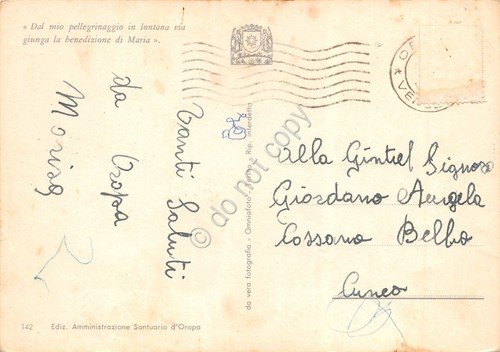 « Dal mio pellegrinaggio in lontana via
giunga la benedizione di Maria ».
Tanti Saluti
da Oropa
Marisa
Alla Gintiel Signora
Giordano Angela
Cossano Belbo
Cuneo
da vera fotografia - Omniafoto - Torino - Rip. interdetta
do not copy
142 Ediz. Amministrazione Santuario d'Oropa